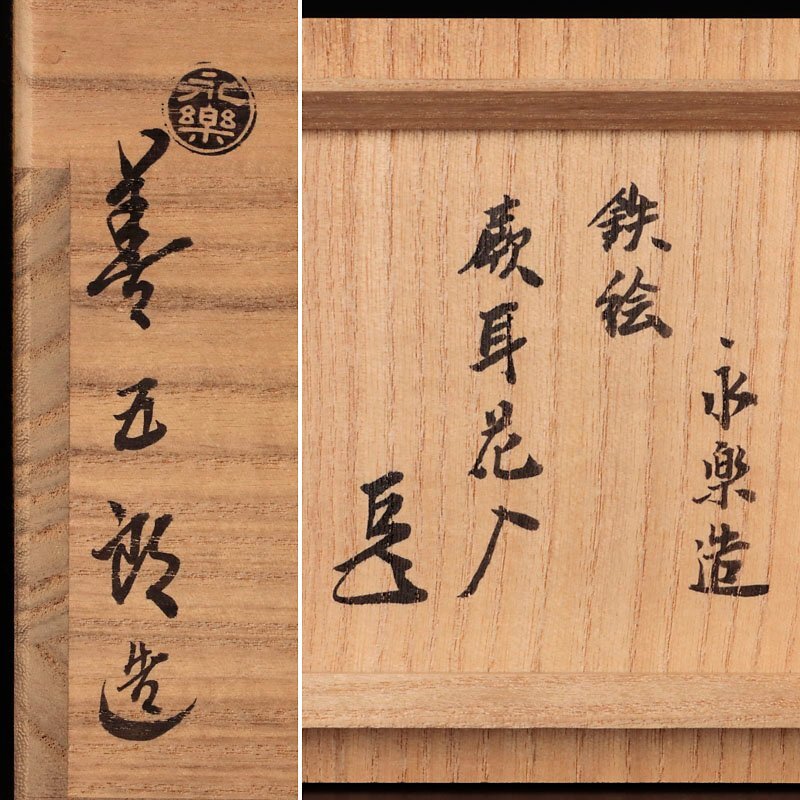 永樂
善五郎造
永楽造
鉄絵
蕨耳花入